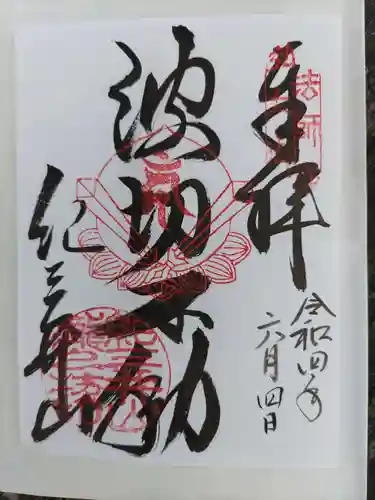 奉拝
令和四年
六月四日
波切不動
紀三井山